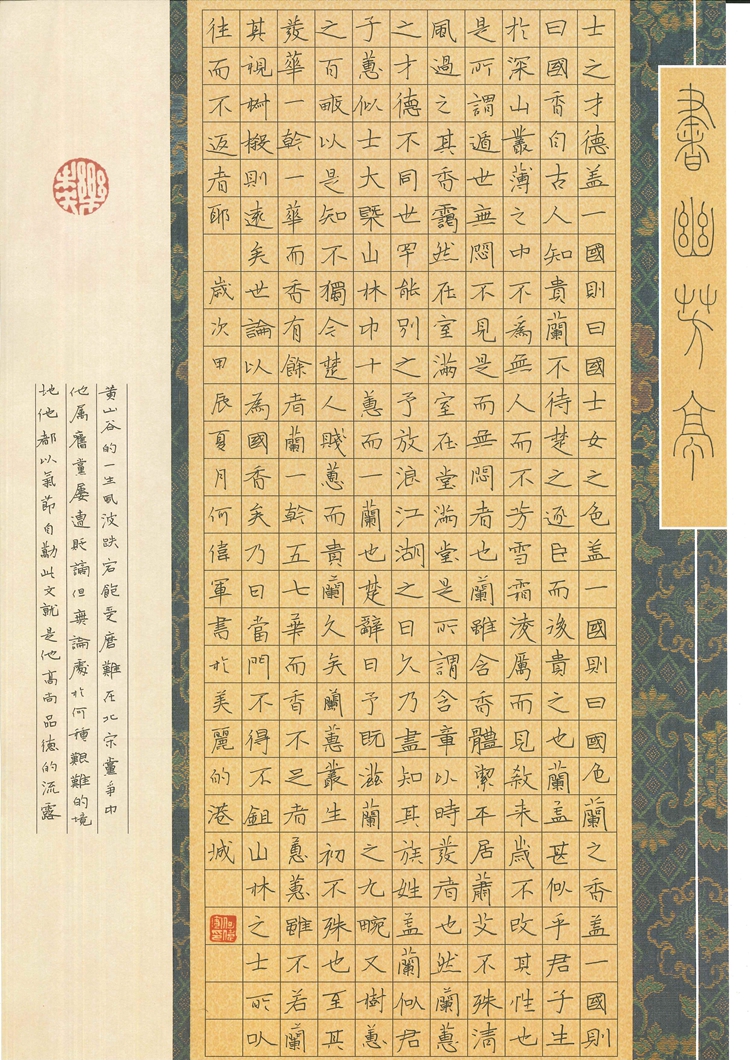 書幽芳亭
士之才德蓋一國則曰國士女之色蓋一國則曰國色蘭之香蓋一國則
曰國香自古人知貴蘭不待楚之逐臣而後貴之也蘭蓋甚似乎君子生
於深山叢薄之中不為無人而不芳雪霜凌厲而見殺来歲不改其性也
是所謂遁世無悶不見是而無悶者也蘭雖含香體潔平居蕭艾不殊清
風過之其香靄然在室滿室在堂滿堂是所謂含章以時發者也然蘭蕙
之才德不同世罕能別之予放浪江湖之日久乃盡知其族姓蓋蘭似君
子蕙似士大槩山林中十蕙而一蘭也楚辭曰予既滋蘭之九畹又樹蕙
之百畝以是知不獨今楚人賤蕙而貴蘭久矣蘭蕙叢生初不殊也至其
發華一幹一華而香有餘者蘭一幹五七華而香不足者蕙蕙雖不若蘭
其視树樧則遠矣世論以為國香矣乃曰當門不得不鉏山林之士所以
往而不返者耶 歲次甲辰夏月何偉軍書於美麗的港城
黃山谷的一生風波跌宕飽受磨難在北宗黨爭中
他屬舊黨屢遭貶謫但無論處於何種艱難的境
地他都以氣節自勵此文就是他高尚品德的流露